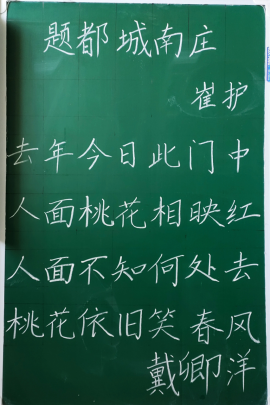 题都城南庄
崔护
去年今日此门中
人面桃花相映红
人面不知何处去
桃花依旧笑春风
戴卿洋